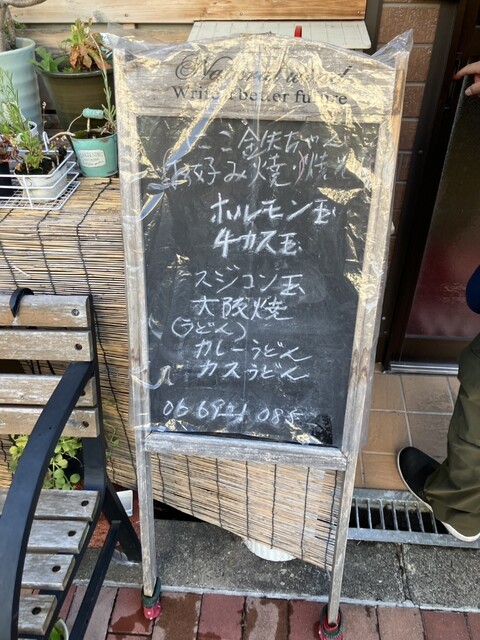 Natural wood
Write a better future
お好み焼 焼そ
ホルモン玉
牛カス玉
スジコン玉
大阪焼
(うどん)
カレーうどん
カスうどん
06 6921 085